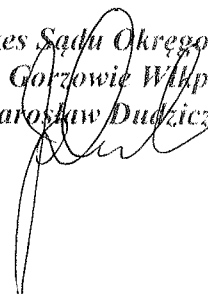 zes Sądu Okręgo
Gorzowie Wlkp
arosław Dudzicz